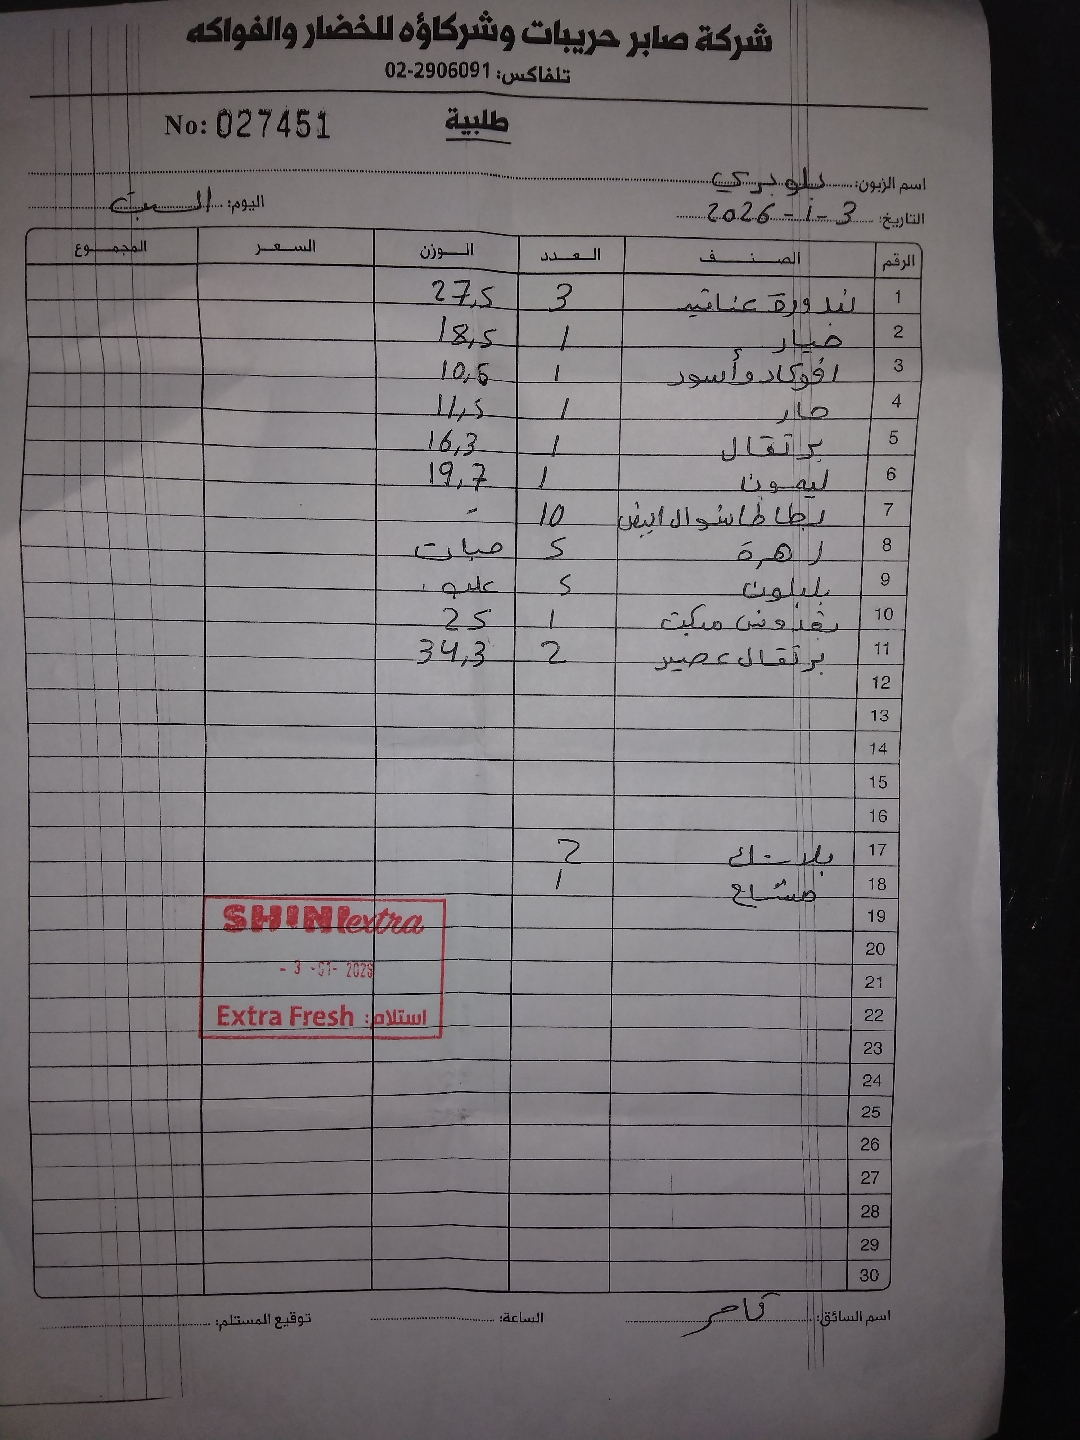 شركة صابر حريبات وشركاؤه للخضار والفواكه
تلفاكس: 02-2906091
طلبية
No: 027451
اسم الزبون: بلوبري
اليوم: السبت
التاريخ: 3-1-2026
الرقم الصنف العدد الوزن السعر المجموع
1 بندورة عناقيد 3 27,5
2 خيار 1 18,5
3 افوكادو أسود 1 10,5
4 حار 1 11,5
5 برتقال 1 16,3
6 ليمون 1 19,7
7 بطاطا شوال ابيض 10 -
8 زهرة 5 حبات
9 5 علب
10 بقدونس مكبت 1 25
11 برتقال عصير 2 34,3
12
13
14
15
16
17 2
18 مشتاح 1
19
20
21
22
23
24
25
26
27
28
29
30
SHINI extra
- 3 -01- 2026
Extra Fresh استلام:
اسم السائق:
الساعة:
توقيع المستلم: